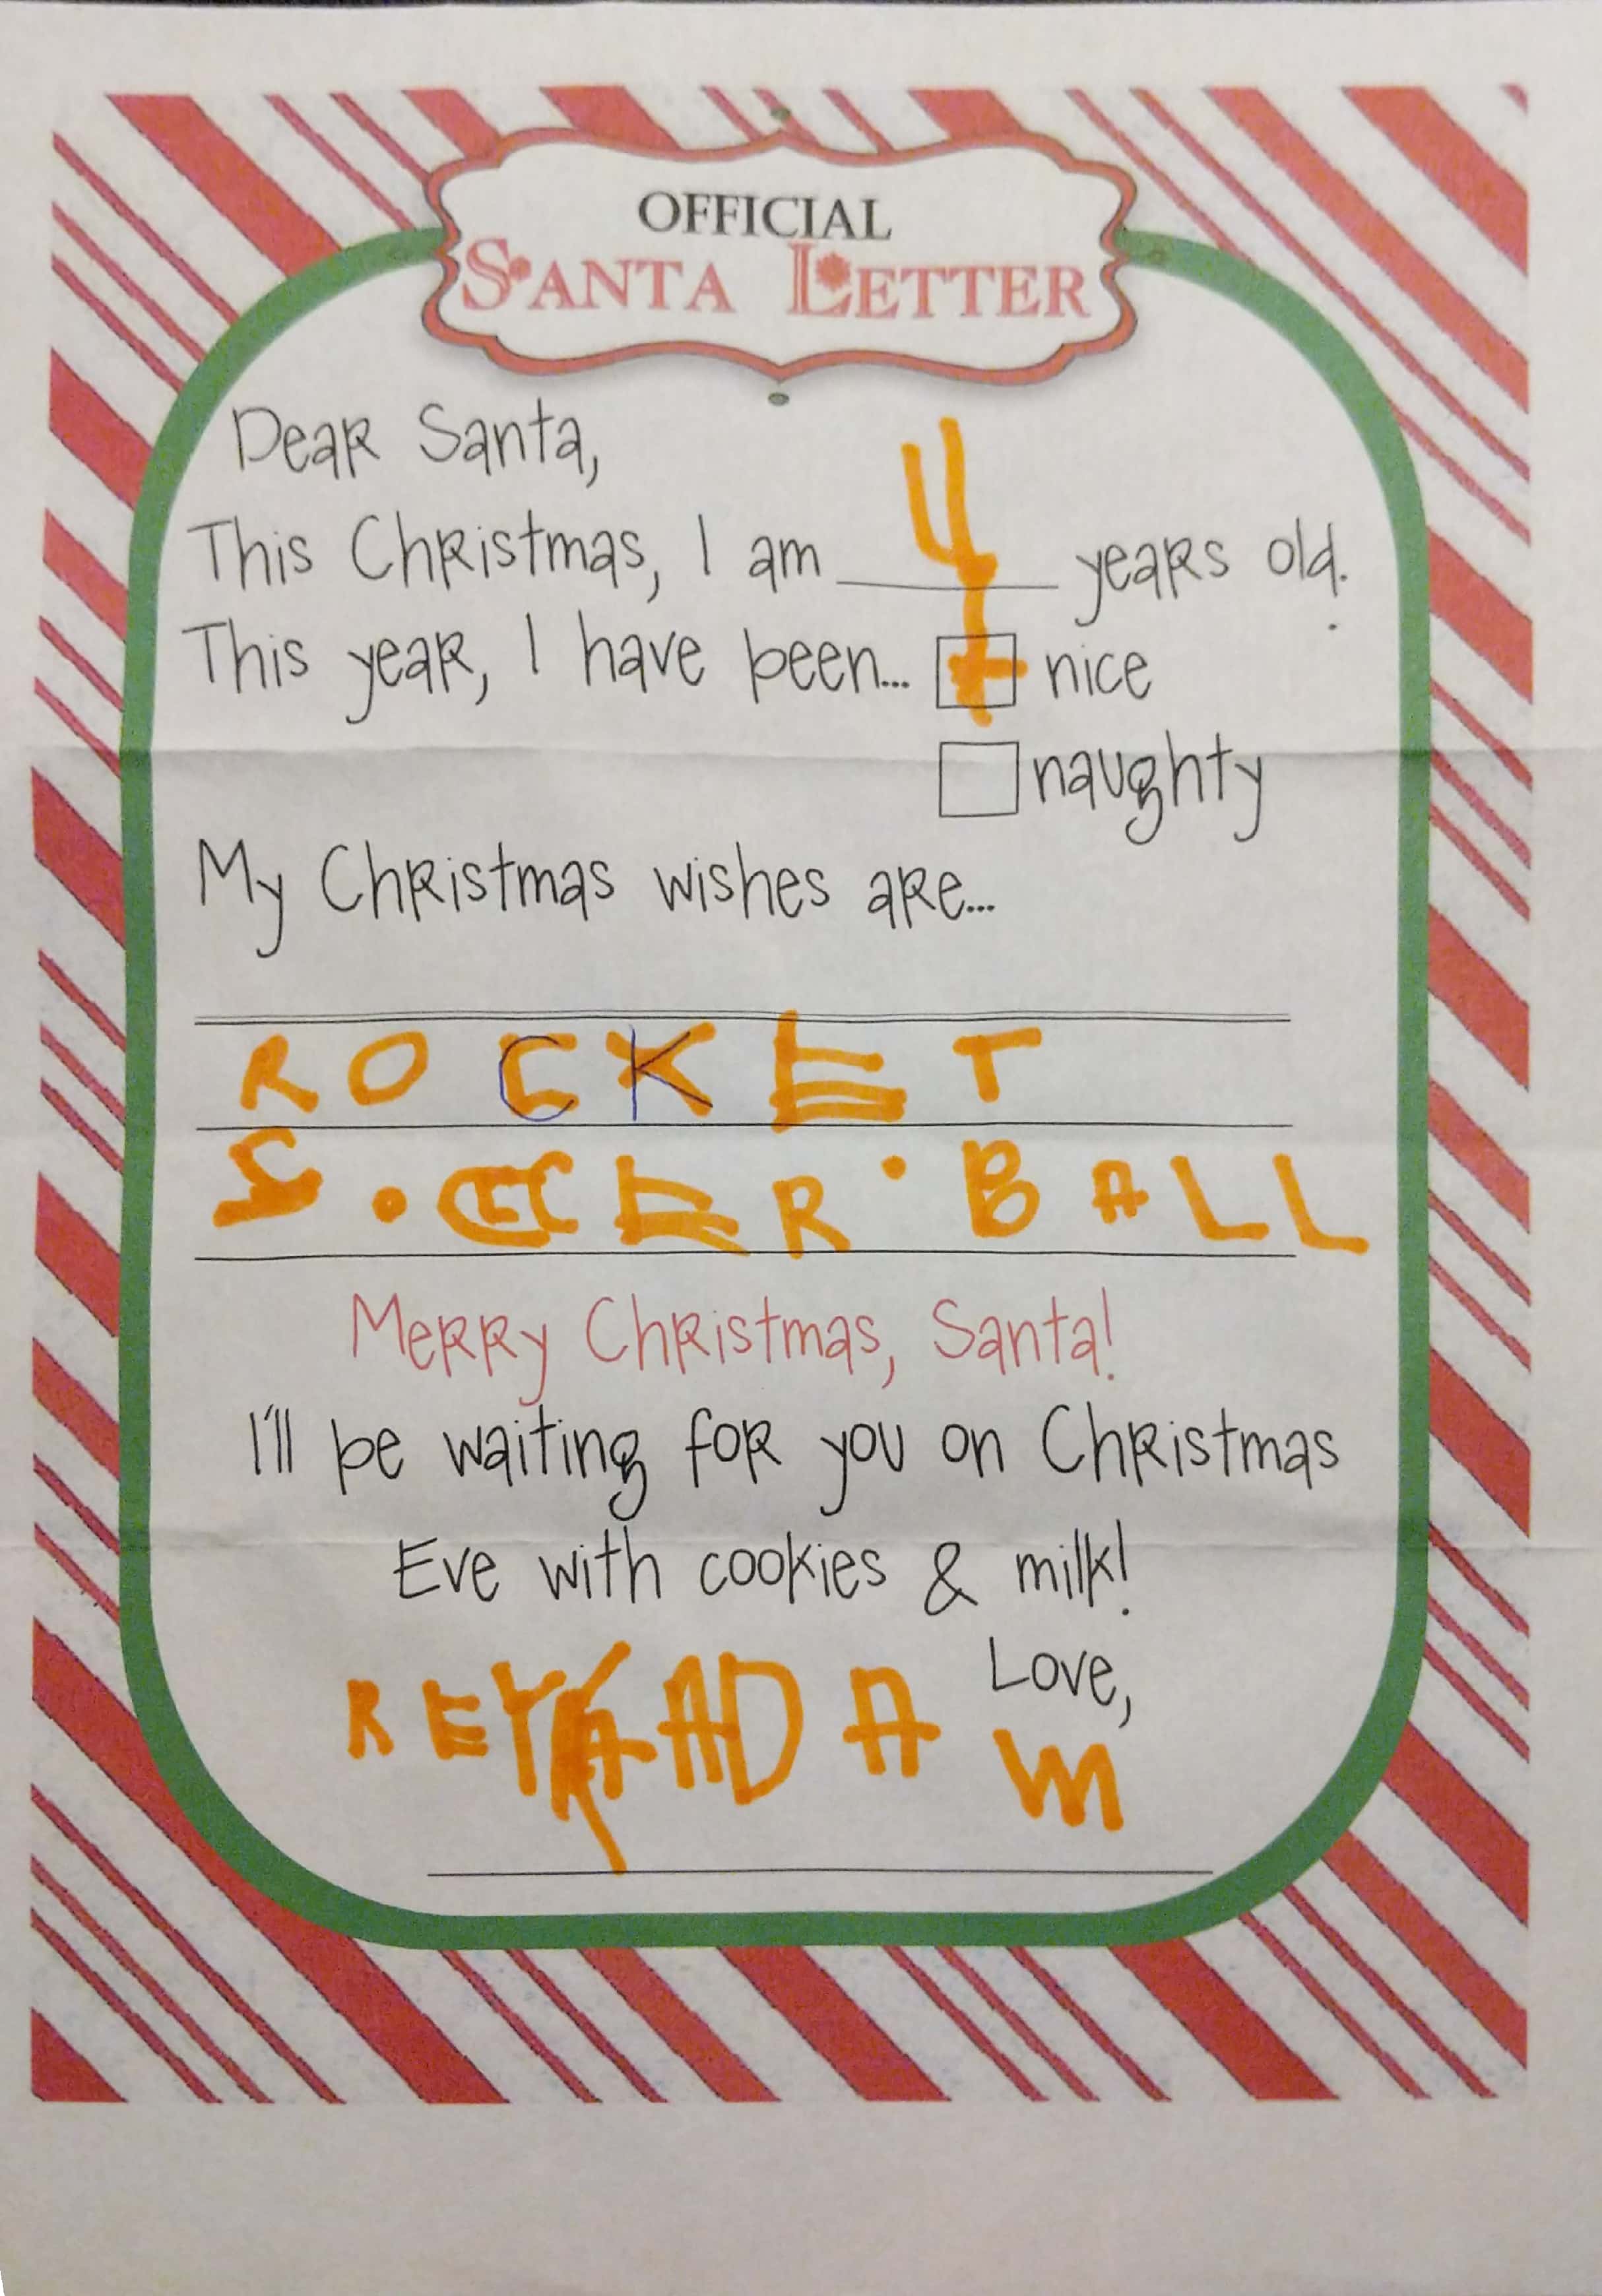 OFFICIAL
SANTA LETTER
Dear Santa,
This Christmas, I am 4 years old.
This year, I have been... nice
naughty
My Christmas wishes are...
ROCKET
SOCCER BALL
Merry Christmas, Santa!
I'll be waiting for you on Christmas
Eve with cookies & milk!
Love,